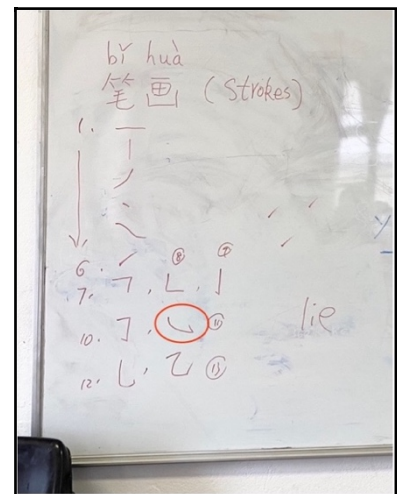 bǐ huà
笔画 (Strokes)
1. 一
丨
丿
丶
㇏
6. ㇀
7. ㇕, ⑧ ㇗, ⑨ 亅
10. ㇆, ⑪ ㇃
12. ㇄, ⑬ 乙
lie
y